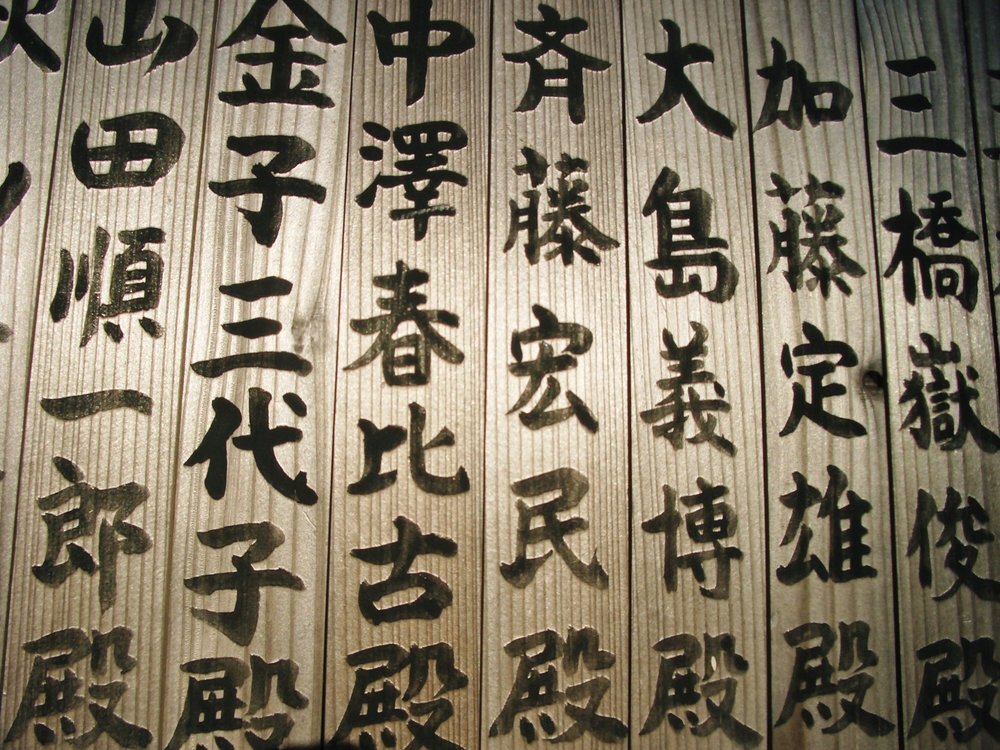 三橋嶽俊殿
加藤定雄殿
大島義博殿
斉藤宏民殿
中澤春比古殿
金子三代子殿
山田順一郎殿